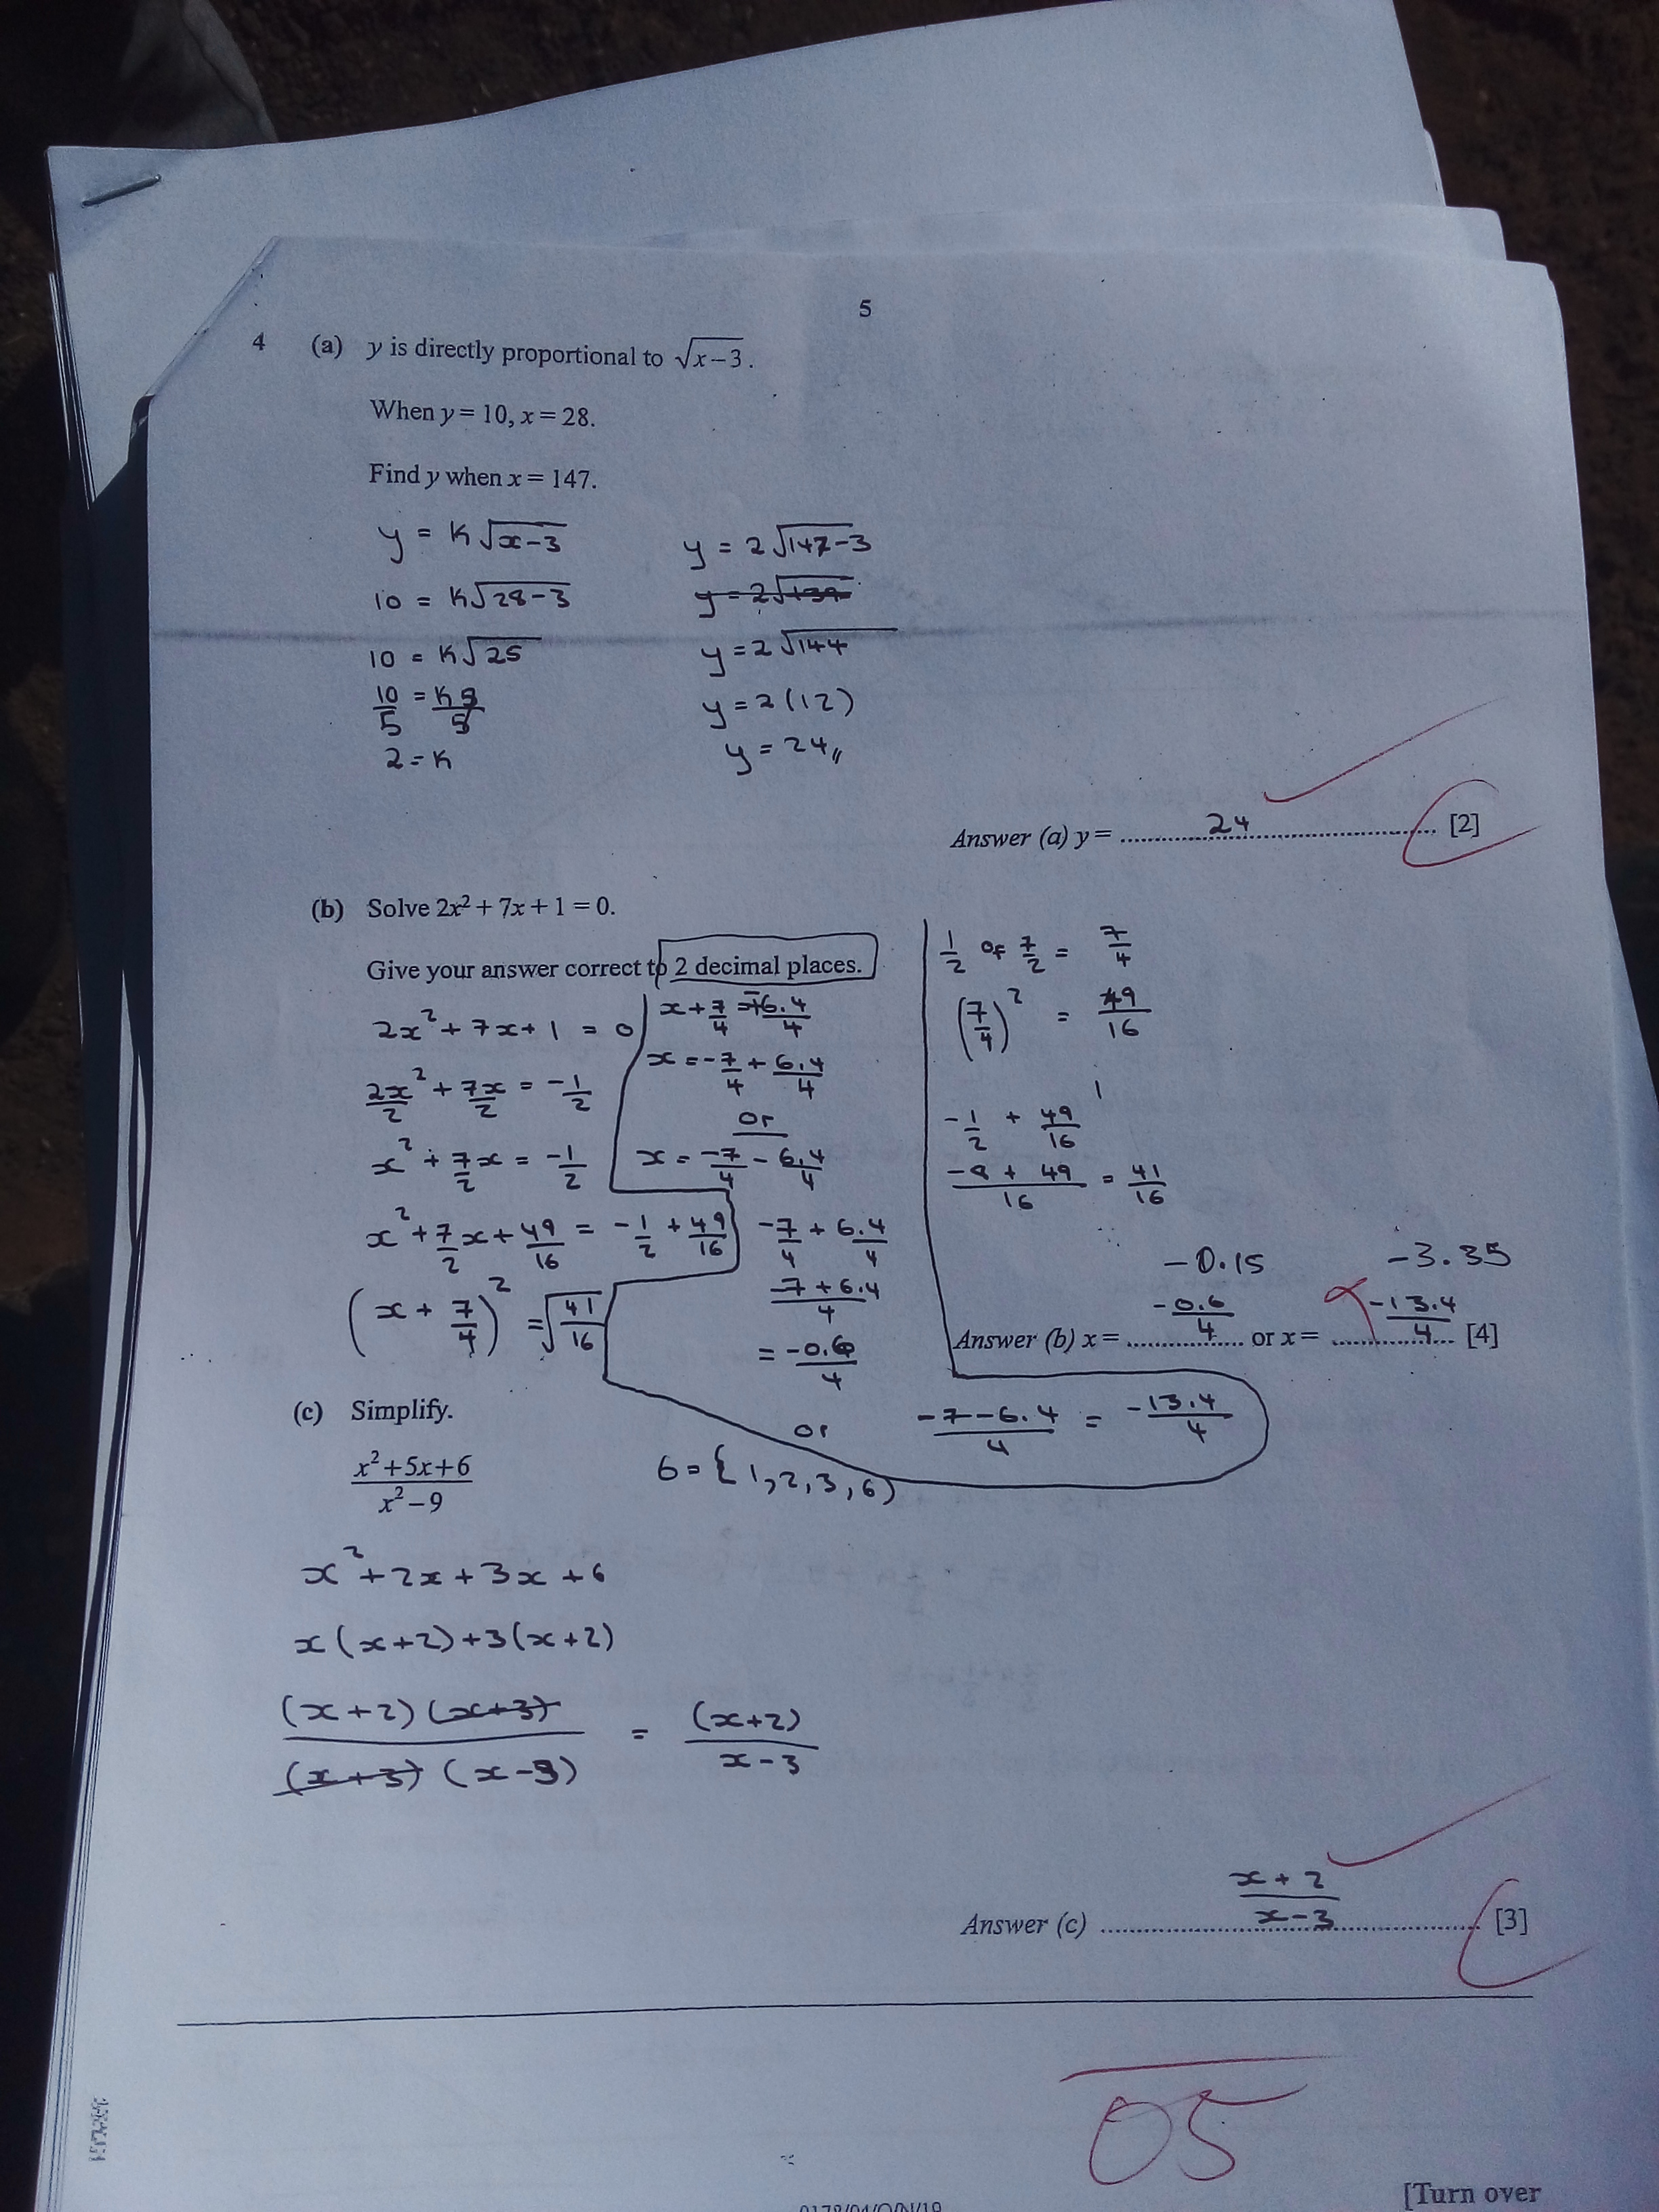 5
4 (a) y is directly proportional to √x−3.
When y = 10, x = 28.
Find y when x = 147.
y = k√x−3
10 = k√28−3
10 = k√25
10/5 = k5/5
2 = k
y = 2√147−3
y = 2√144
y = 2(12)
y = 24,,
Answer (a) y = 24 [2]
(b) Solve 2x² + 7x + 1 = 0.
Give your answer correct to 2 decimal places.
2x² + 7x + 1 = 0
2x²/2 + 7x/2 = −1/2
x² + 7/2x = −1/2
x² + 7/2x + 49/16 = −1/2 + 49/16
(x + 7/4)² = √41/16
x + 7/4 = ±6.4/4
x = −7/4 + 6.4/4
or
x = −7/4 − 6.4/4
−7/4 + 6.4/4
−7 + 6.4/4
= −0.6/4
or −7−6.4/4 = −13.4/4
1/2 of 7/2 = 7/4
(7/4)² = 49/16
−1/2 + 49/16
−8 + 49/16 = 41/16
−0.15 −3.35
Answer (b) x = −0.6/4 or x = −13.4/4 [4]
(c) Simplify.
x²+5x+6/x²−9
6 = {1,2,3,6)
x² + 2x + 3x + 6
x(x+2)+3(x+2)
(x+2)(x+3)/(x+3)(x−3) = (x+2)/x−3
Answer (c) x+2/x−3 [3]
05
[Turn over